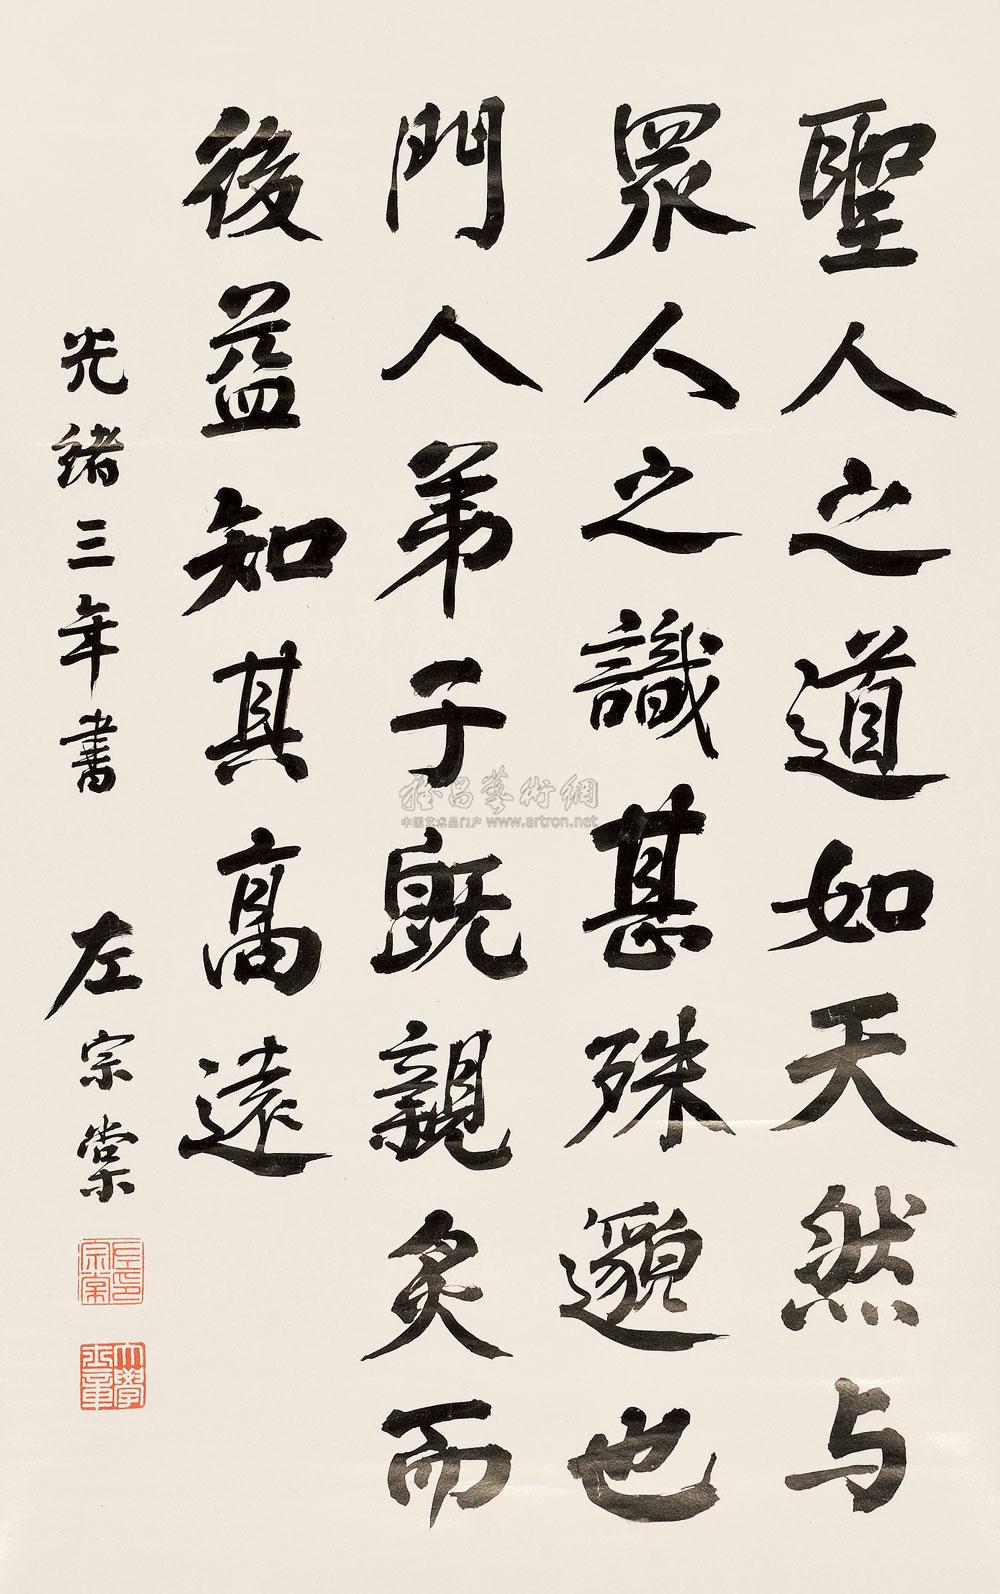 聖人之道如天然与
眾人之識甚殊邈也
門人弟子既親炙而
後益知其高遠
光緒三年書 左宗棠
左宗棠印
大學士章
雅昌藝術網
中国艺术品门户 www.artron.net